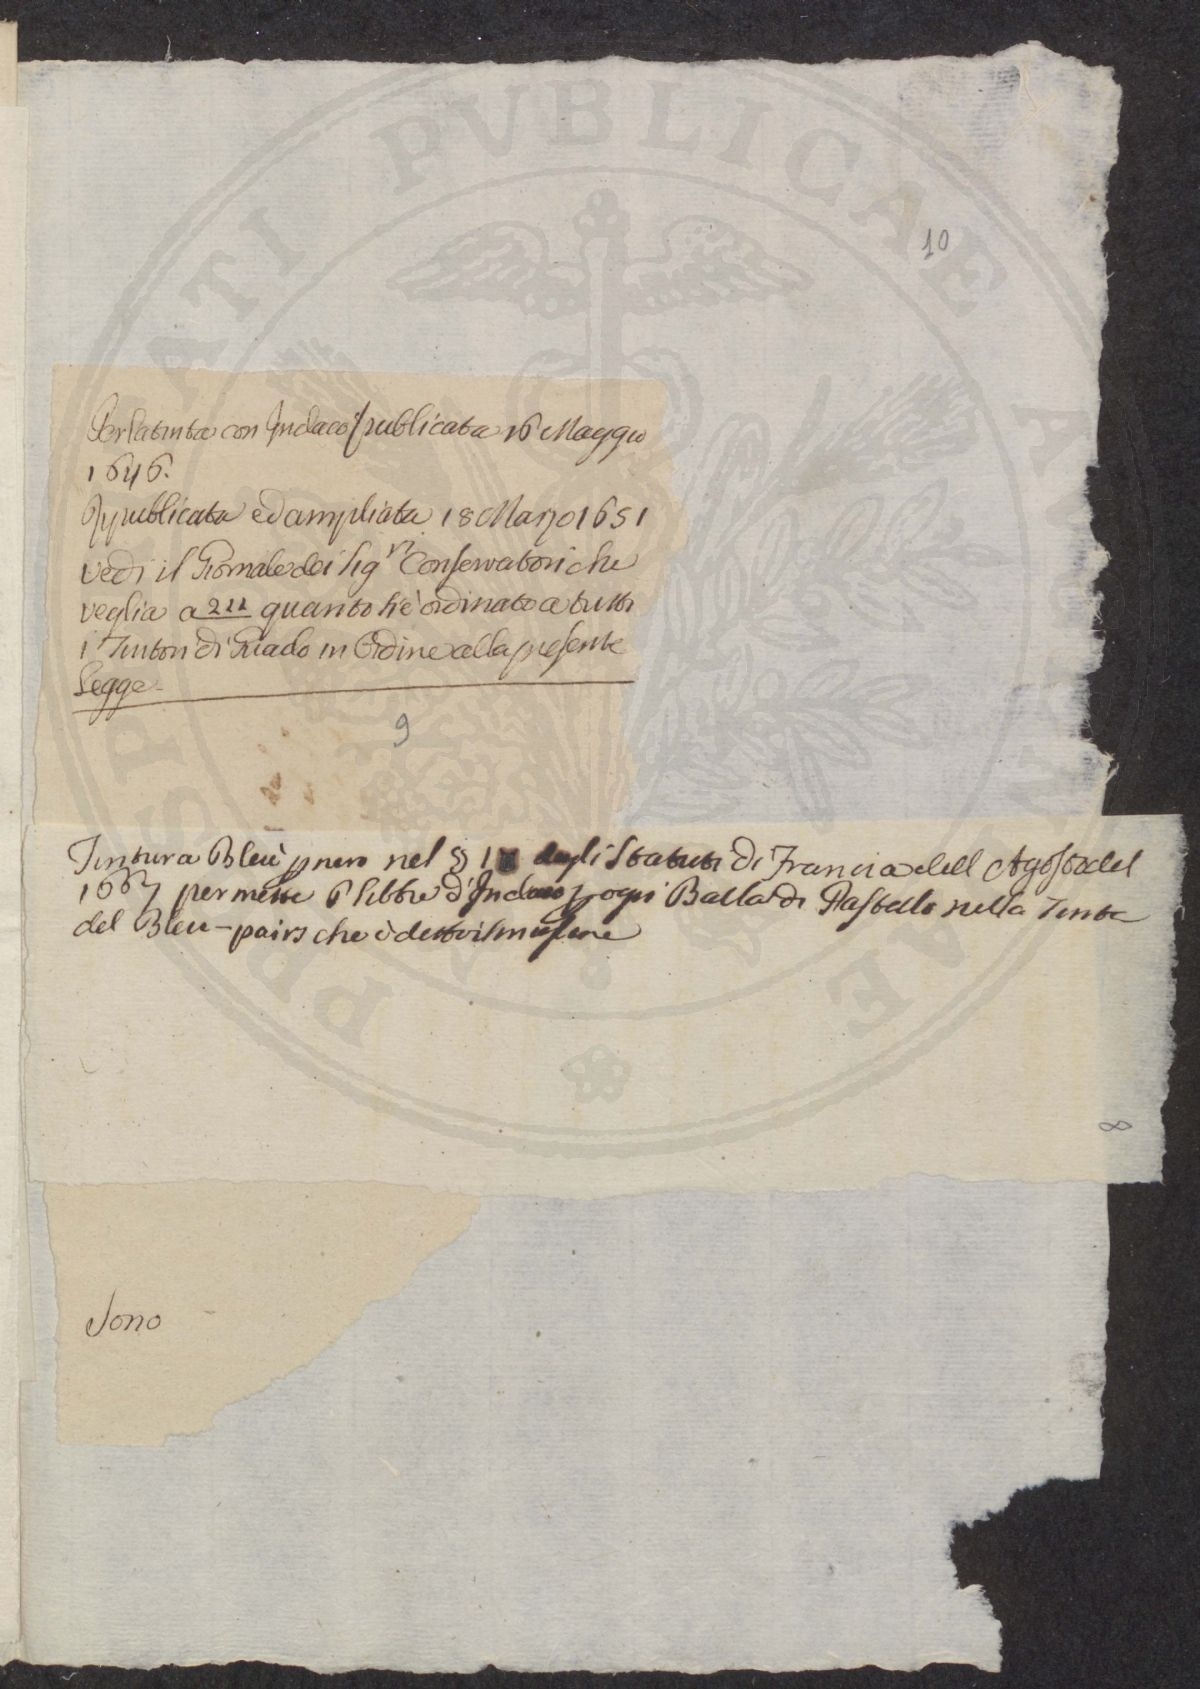 10
Per la tinta con Indaco publicata 16 Maggio
1646.
Rypublicata ed ampliata 18 Marzo 1651
vedi il Giornale dei Sig.ri Conservatori che
veglia a 211 quanto si è ordinato a tutti
i Tintori di Guado in Ordine alla presente
Legge-
9
Tintura Bleuè p nero nel § 1 degli Statuti di Francia dell Agosto del
1667 permette 6 libbre d'Indaco p ogni Balla di Pastello nella Tinta
del Bleu-pairs che è detto
8
Sono
PVBLICAE